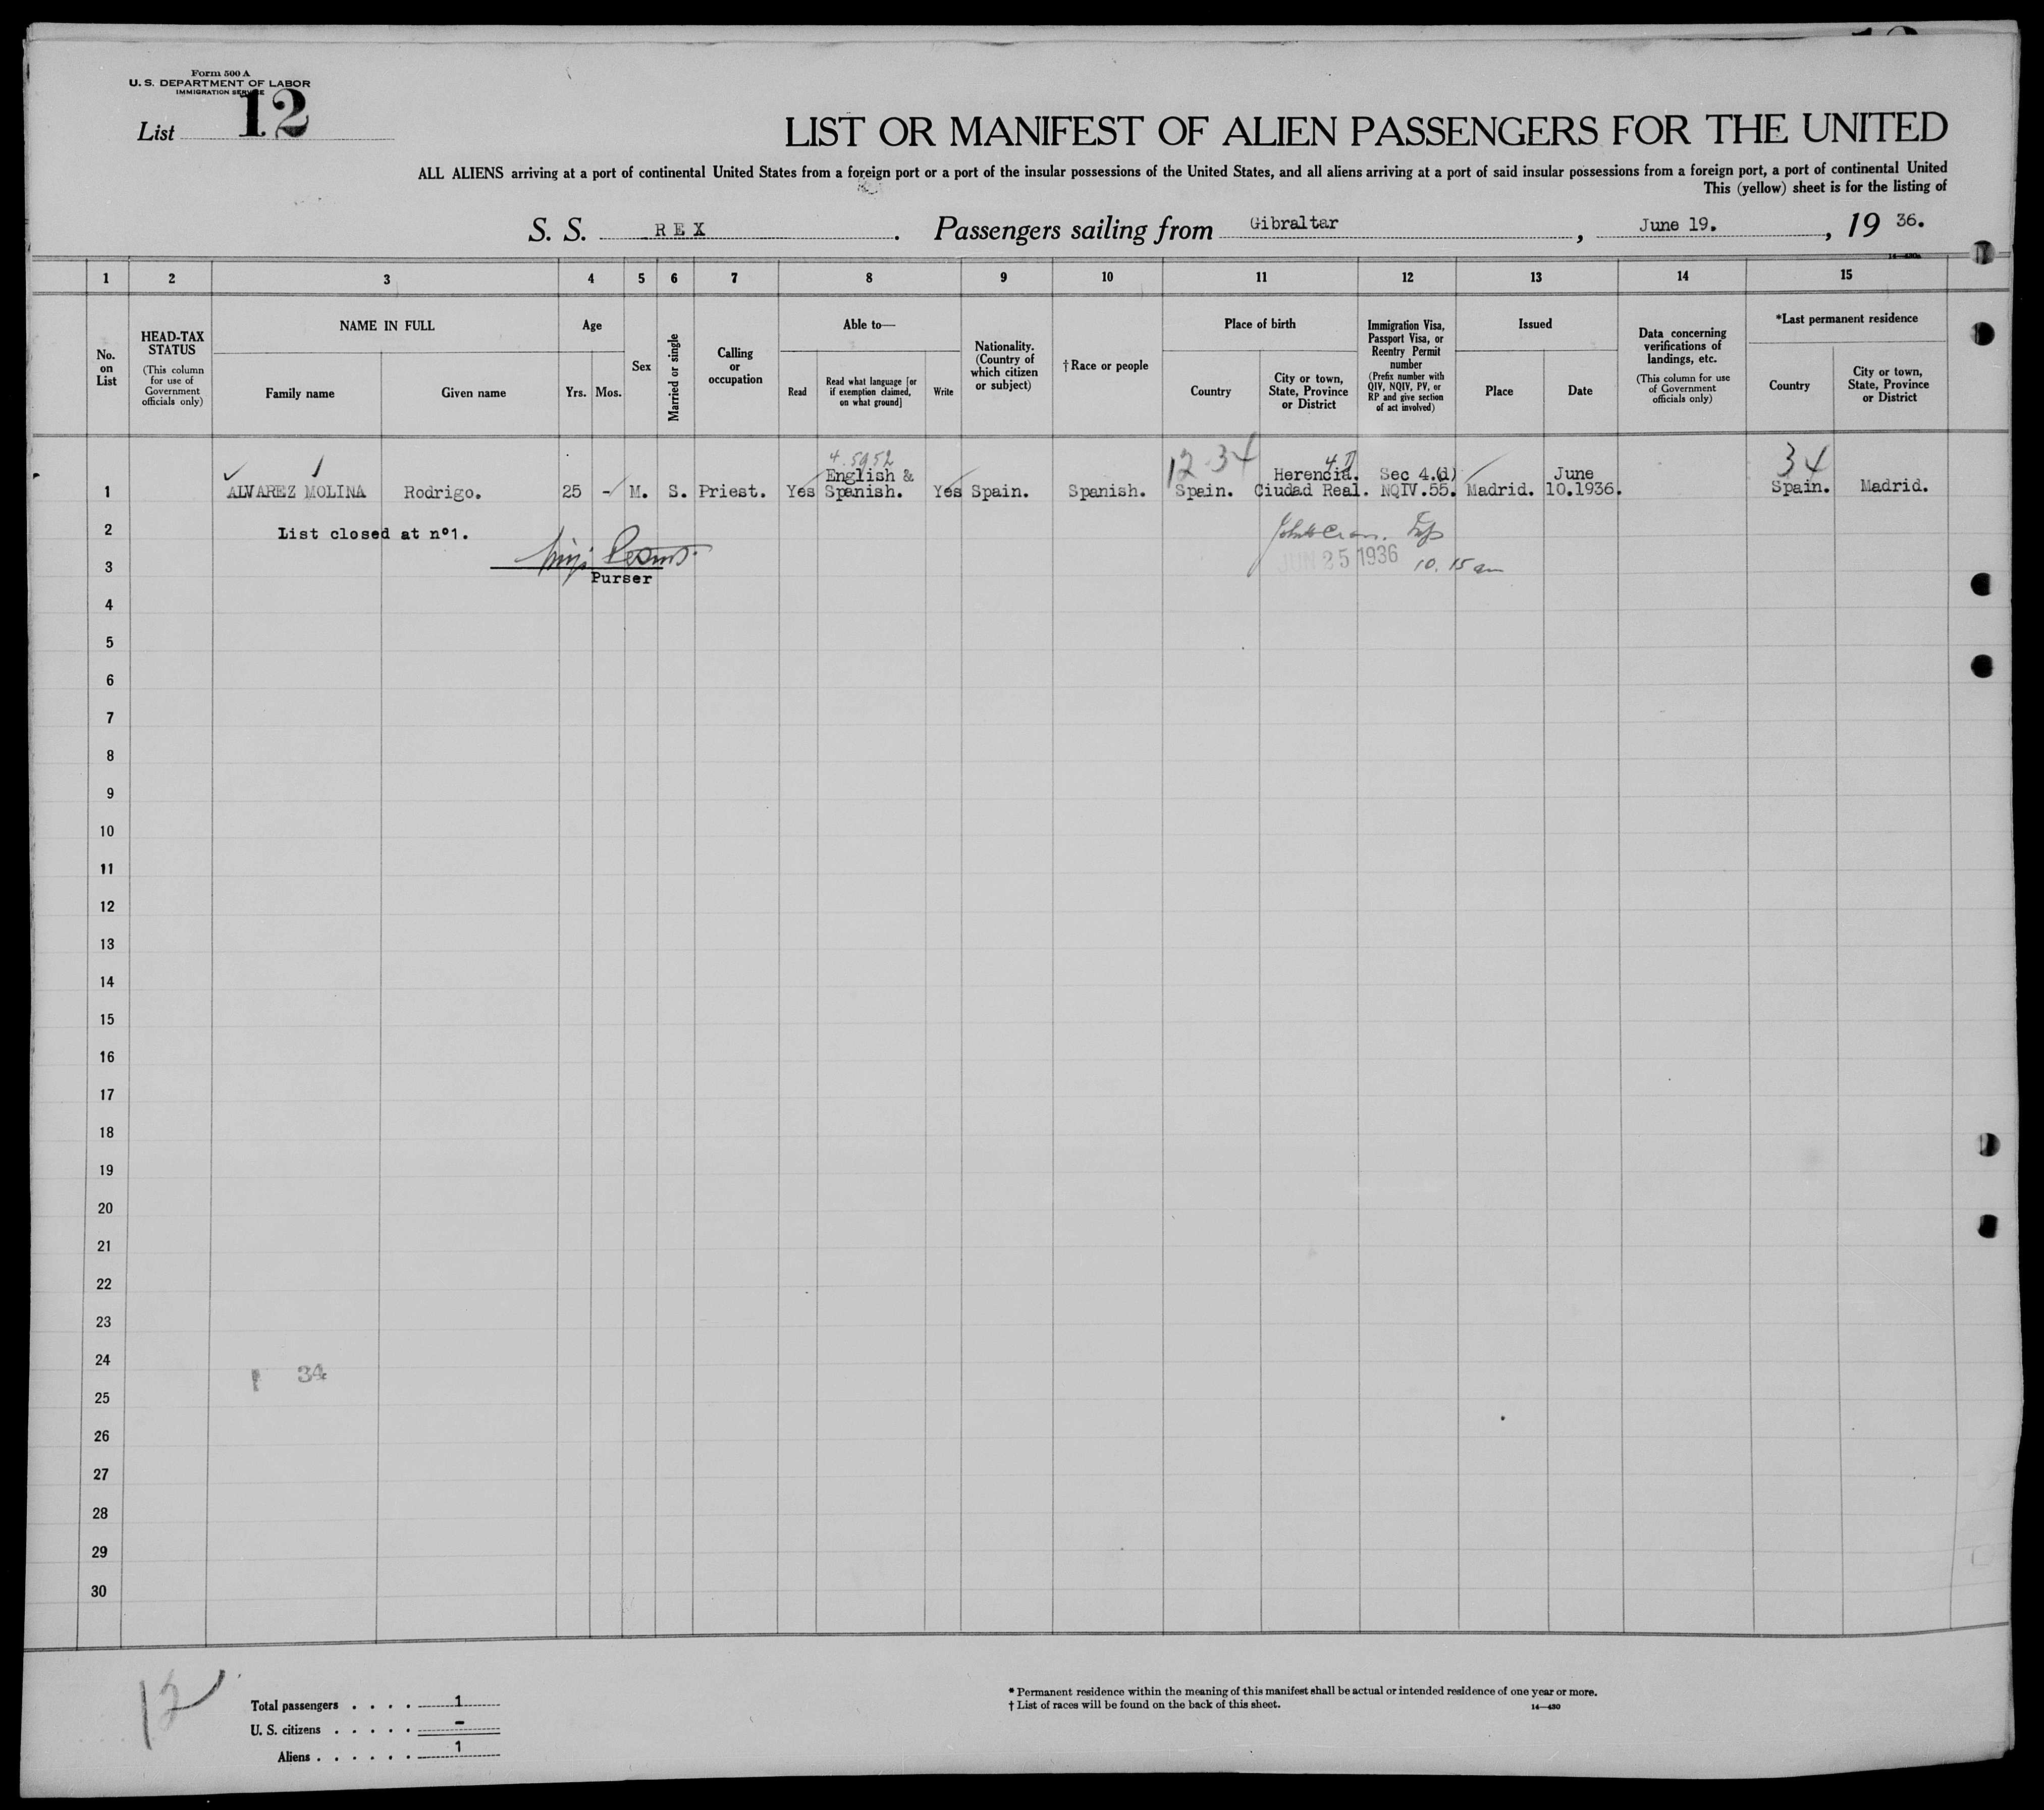 Form 500 A
U. S. DEPARTMENT OF LABOR
IMMIGRATION SERVICE
List 12
LIST OR MANIFEST OF ALIEN PASSENGERS FOR THE UNITED
ALL ALIENS arriving at a port of continental United States from a foreign port or a port of the insular possessions of the United States, and all aliens arriving at a port of said insular possessions from a foreign port, a port of continental United
This (yellow) sheet is for the listing of
S. S. REX. Passengers sailing from Gibraltar, June 19., 19 36.
14—430a
1 2 3 4 5 6 7 8 9 10 11 12 13 14 15
No. on List
HEAD-TAX STATUS
(This column for use of Government officials only)
NAME IN FULL
Family name
Given name
Age
Yrs. Mos.
Sex
Married or single
Calling or occupation
Able to—
Read
Read what language [or if exemption claimed, on what ground]
Write
Nationality. (Country of which citizen or subject)
† Race or people
Place of birth
Country
City or town, State, Province or District
Immigration Visa, Passport Visa, or Reentry Permit number
(Prefix number with QIV, NQIV, PV, or RP and give section of act involved)
Issued
Place
Date
Data concerning verifications of landings, etc.
(This column for use of Government officials only)
*Last permanent residence
Country
City or town, State, Province or District
4. 5952 12-34 4 II 34
English & Herencia. Sec 4.(d) June
1 ALVAREZ MOLINA Rodrigo. 25 - M. S. Priest. Yes Spanish. Yes Spain. Spanish. Spain. Ciudad Real. NQIV.55. Madrid. 10.1936. Spain. Madrid.
2 List closed at nº1.
3 JUN 25 1936 10. 15 am
Purser
4
5
6
7
8
9
10
11
12
13
14
15
16
17
18
19
20
21
22
23
24
34
25
26
27
28
29
30
12
Total passengers . . . . 1
U. S. citizens . . . . . -
Aliens . . . . . . 1
* Permanent residence within the meaning of this manifest shall be actual or intended residence of one year or more.
† List of races will be found on the back of this sheet.
14—430